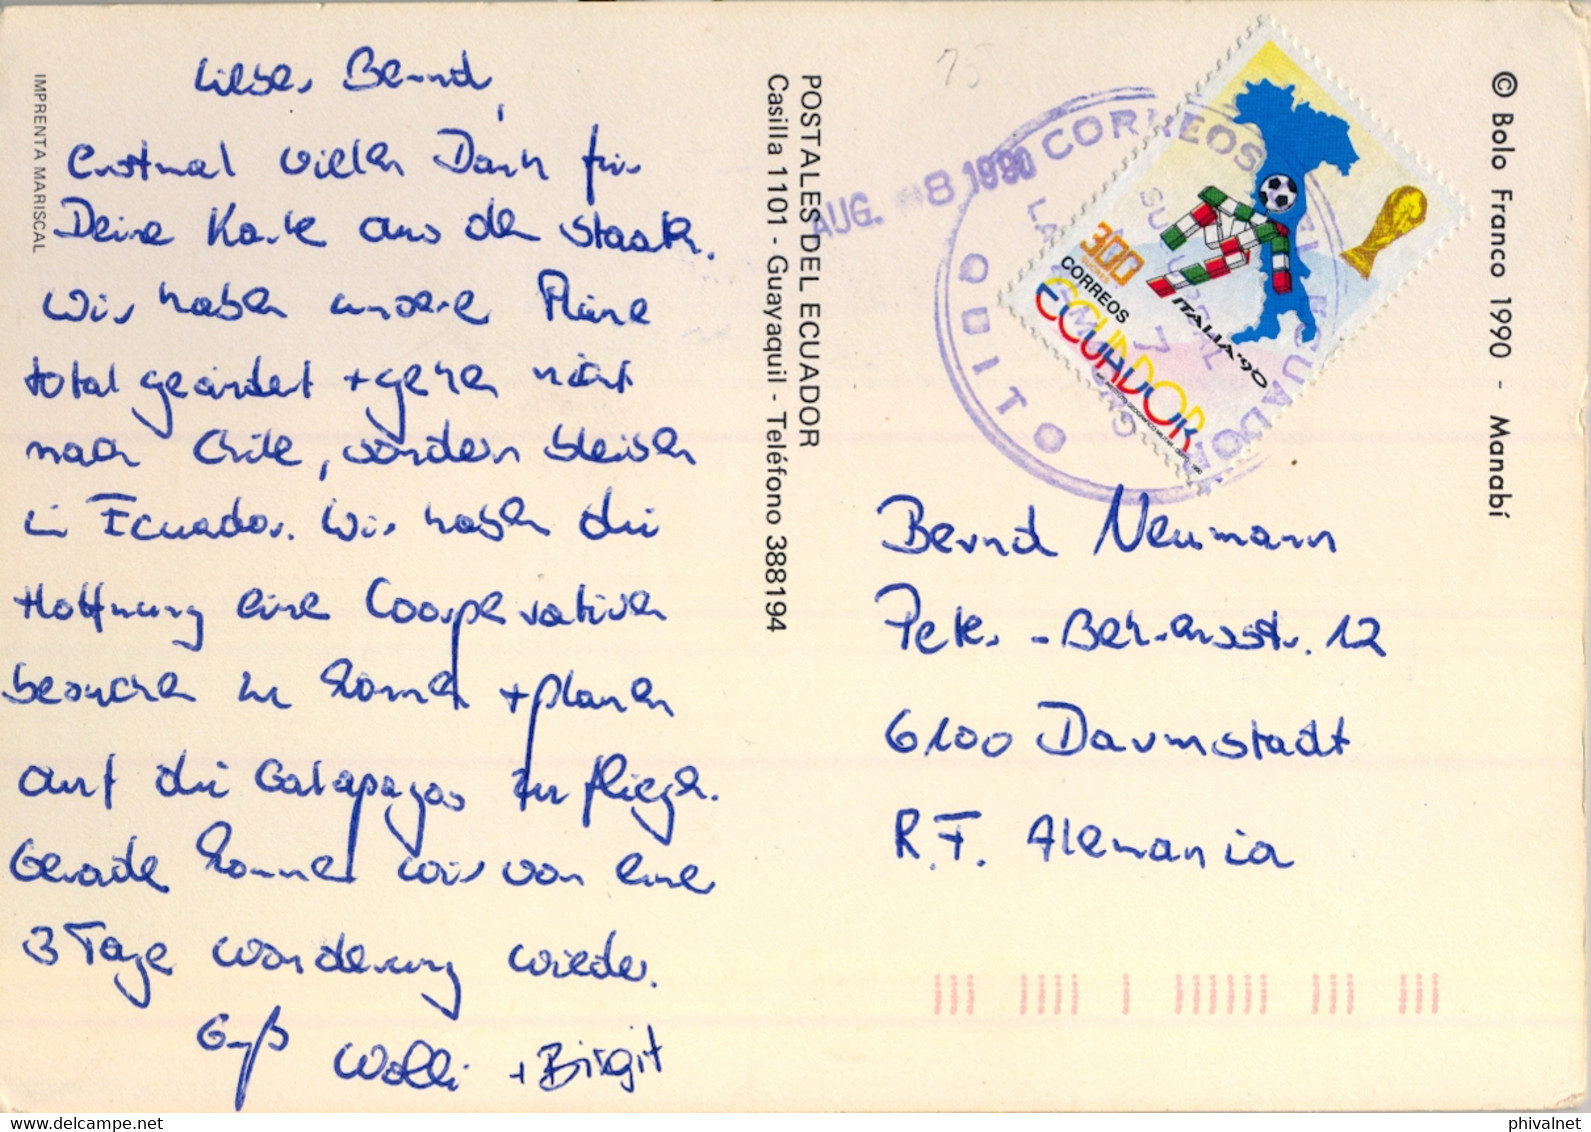 Lieber Bernd,
erstmal vielen Dank für
Deine Karte aus den Staaten.
Wir haben unsere Pläne
total geändert + gehen nicht
nach Chile, sondern bleiben
in Ecuador. Wir haben die
Hoffnung eine Cooperativen
besuchen zu können + planen
auf die Galapagos zu fliegen.
Gerade kommen wir von einer
3 Tage Wanderung wieder.
Gruß Wolli + Birgit
IMPRENTA MARISCAL
POSTALES DEL ECUADOR
Casilla 1101 - Guayaquil - Teléfono 388194
© Bolo Franco 1990 - Manabí
75
AUG. 8 1990
CORREOS
ECUADOR
QUITO
SUCURSAL 7
300
CORREOS
ECUADOR
ITALIA '90
Bernd Neumann
Peter-Behrensstr. 12
6100 Darmstadt
R.F. Alemania
phivalnet